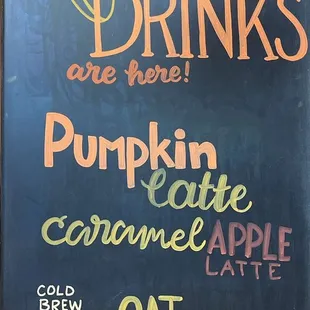 DRINKS
are here!
Pumpkin
latte
caramel APPLE
LATTE
COLD
BREW
OAT